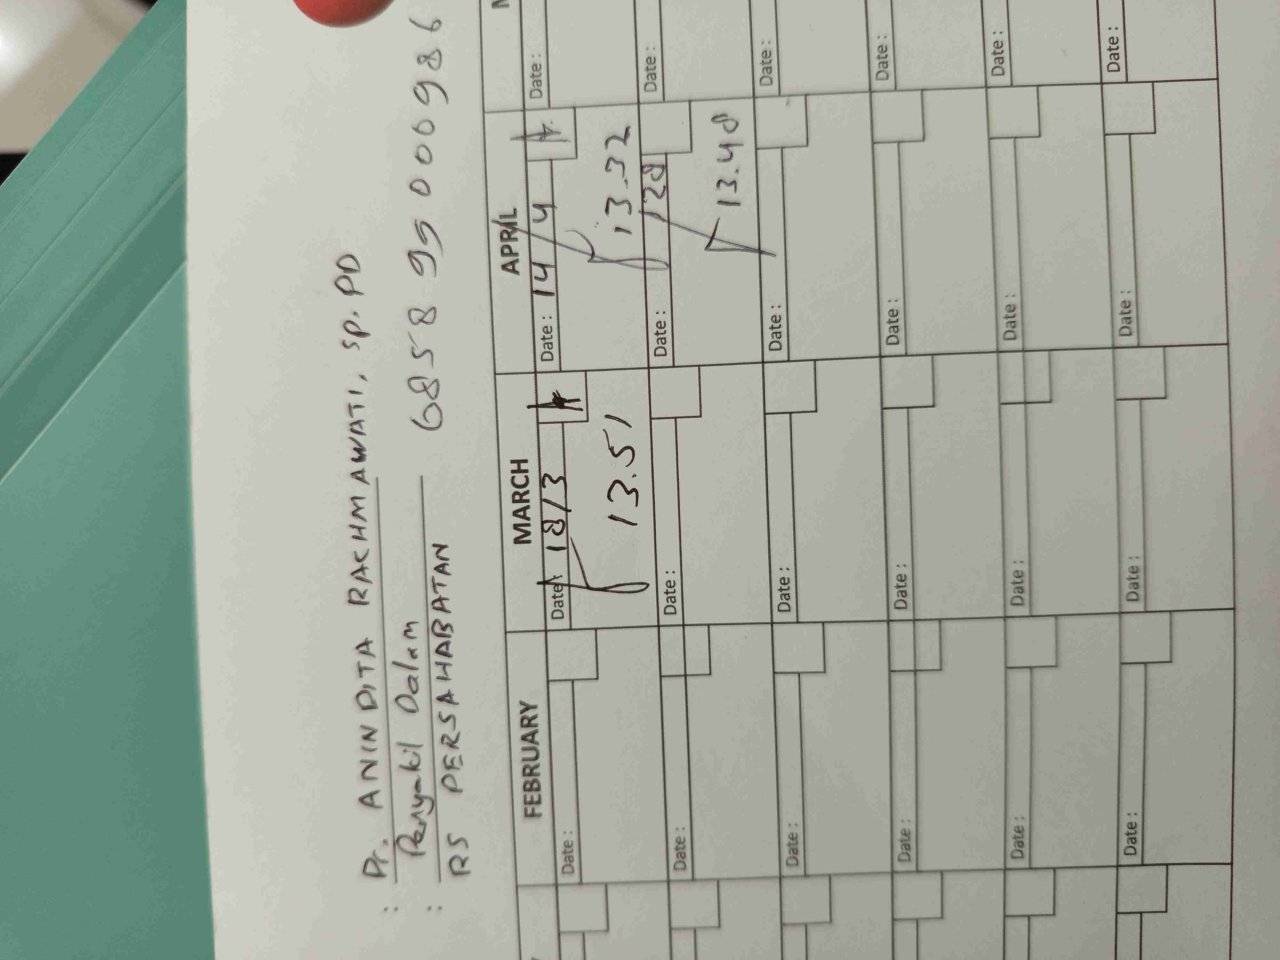 : Dr. ANINDITA RACHMAWATI, SP. PD
: Penyakit Dalam
RS PERSAHABATAN 6858 99000986
FEBRUARY MARCH APRIL
Date : Date : 18/3 Date : 14/4 Date :
13.51 13.32
Date : Date : Date : 128 Date :
13.48
Date : Date : Date : Date :
Date : Date : Date : Date :
Date : Date : Date : Date :
Date : Date : Date : Date :